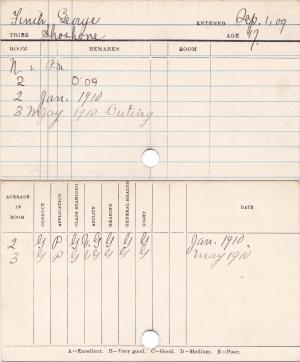 Finch, George ENTERED Sep. 1, 09
TRIBE Shoshone AGE 17.
ROOM REMARKS ROOM
N. 2 P.M.
2 O. 09
2 Jan. 1910
3 May 1910 Outing
AVERAGE IN ROOM CONDUCT APPLICATION CLASS STANDING ABILITY HEARING GENERAL HEALTH SIGHT DATE
2 G P G G G G G Jan. 1910
3 G P G G G G G May 1910
A—Excellent. B—Very good. C—Good. D—Medium. E—Poor.